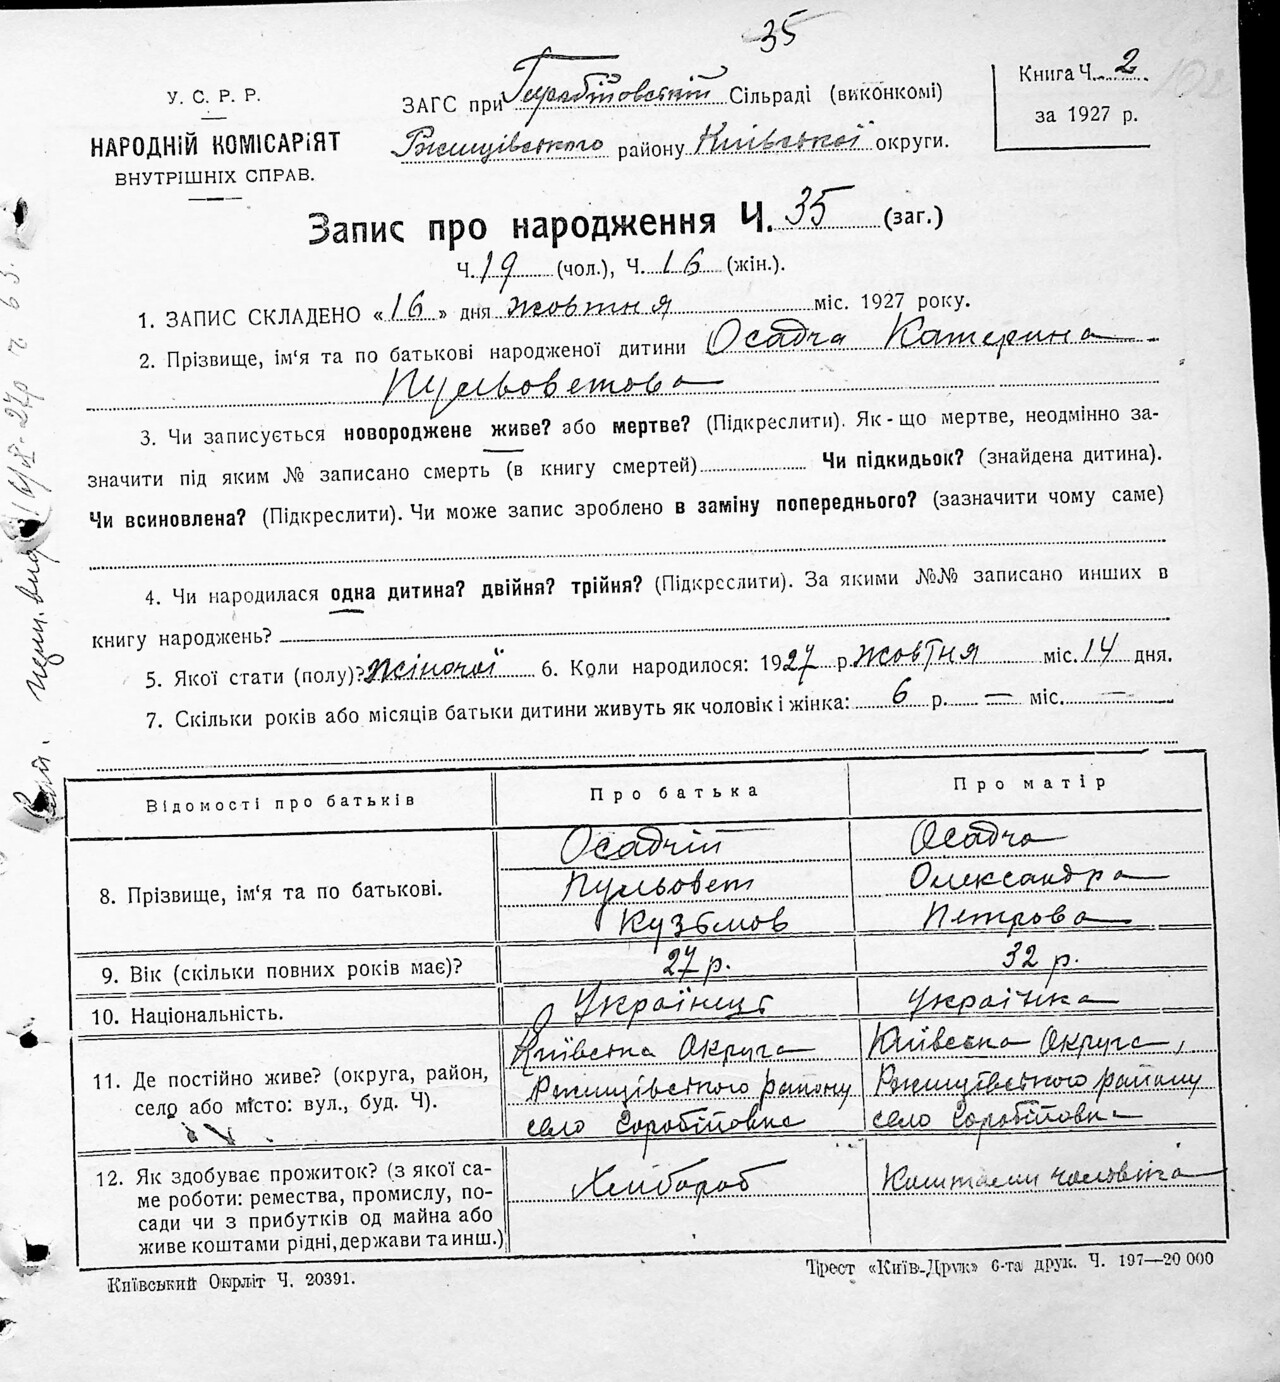 35
У. С. Р. Р.
НАРОДНІЙ КОМІСАРІЯТ
ВНУТРІШНІХ СПРАВ.
ЗАГС при Сільраді (виконкомі)
Ржищівського району Київської округи.
Книга Ч. 2
за 1927 р.
Запис про народження Ч. 35 (заг.)
Ч. 19 (чол.), Ч. 16 (жін.).
1. ЗАПИС СКЛАДЕНО «16» дня жовтня міс. 1927 року.
2. Прізвище, ім'я та по батькові народженої дитини Осадча Катерина
Пульоветова
3. Чи записується новороджене живе? або мертве? (Підкреслити). Як-що мертве, неодмінно за-
значити під яким № записано смерть (в книгу смертей) Чи підкидьок? (знайдена дитина).
Чи всиновлена? (Підкреслити). Чи може запис зроблено в заміну попереднього? (зазначити чому саме)
4. Чи народилася одна дитина? двійня? трійня? (Підкреслити). За якими №№ записано инших в
книгу народжень?
5. Якої стати (полу)? Жіночої 6. Коли народилося: 1927 р. жовтня міс. 14 дня.
7. Скільки років або місяців батьки дитини живуть як чоловік і жінка: 6 р. = міс. =
Відомості про батьків Про батька Про матір
8. Прізвище, ім'я та по батькові. Осадчій Осадча
Пульовет Олександра
Кузьмов Петрова
9. Вік (скільки повних років має)? 27 р. 32 р.
10. Національність. Українець Українка
11. Де постійно живе? (округа, район, село або місто: вул., буд. Ч). Київська Округа Київська Округа,
Ржищівського району Ржищівського району
село Горобіївка село Горобіївка
12. Як здобуває прожиток? (з якої са- Хлібороб Коштами чоловіка
ме роботи: ремества, промислу, по-
сади чи з прибутків од майна або
живе коштами рідні, держави та инш.)
Київський Окрліт Ч. 20391.
Трест «Київ-Друк» 6-та друк. Ч. 197—20 000